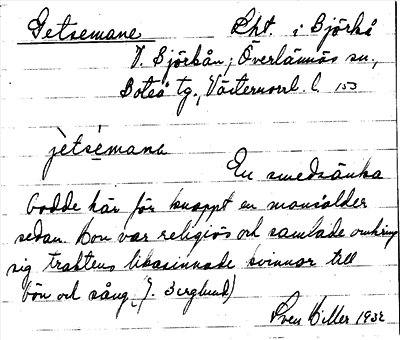 Getsemane Lht. i Björkå
V. Björkån, Överlännäs sn.,
Boteå tg., Västernorrl. l. 153
jètsèmana
En smedsänka
bodde här för knappt en mansålder
sedan. Hon var religiös och samlade omkring
sig traktens likasinnade kvinnor till
bön och sång (J. Berglund)
Sven Killer 1932